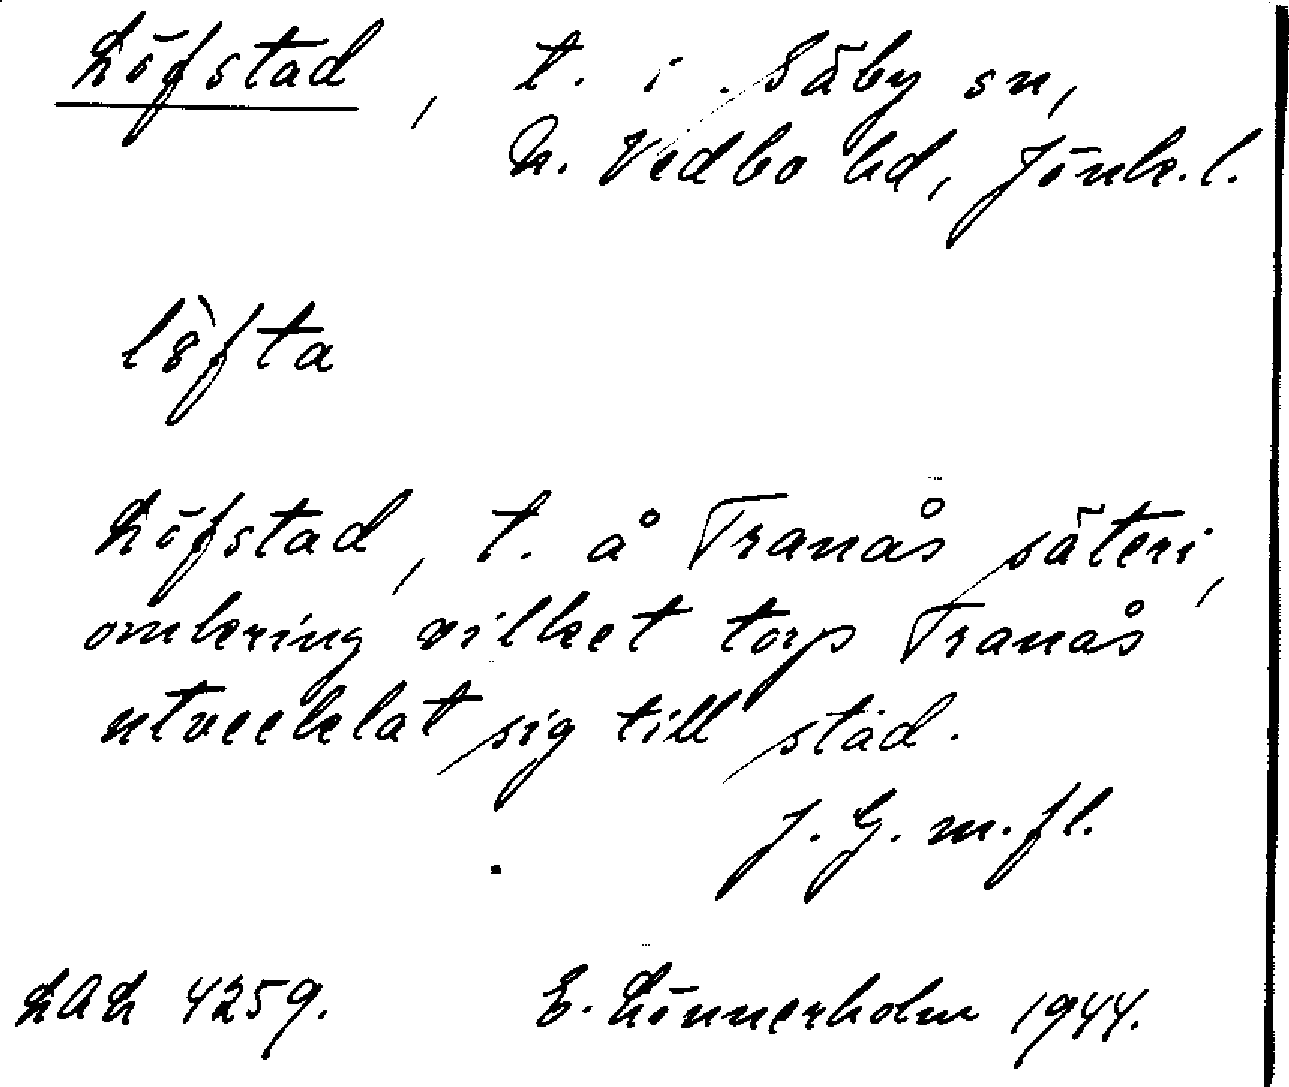 Löfstad, t. i Säby sn,
N. Vedbo hd, Jönk.l.
lö̀fta
Löfstad, t. å Tranås säteri,
omkring vilket torp Tranås
utvecklat sig till stad.
J. G. m. fl.
LAL 4259. E. Lönnerholm 1944.